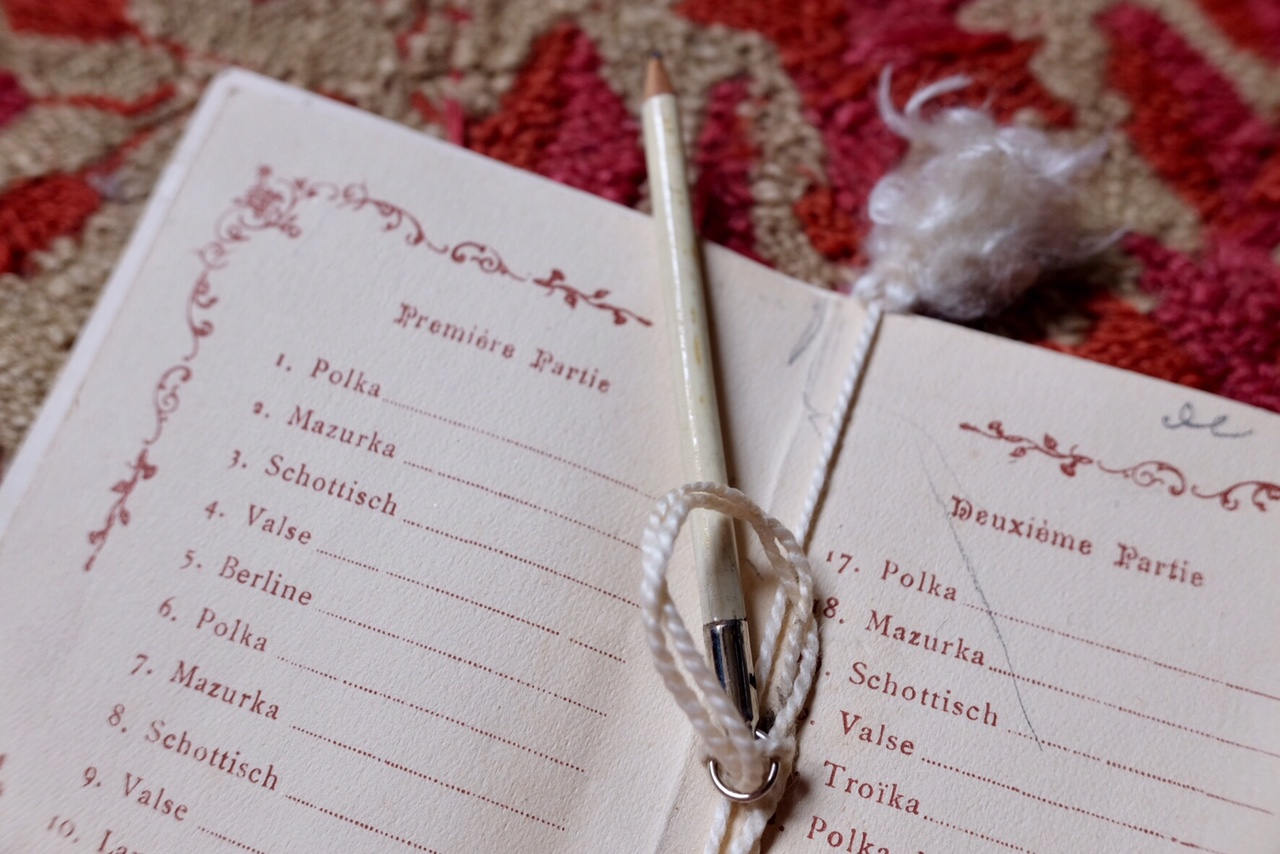 Première Partie
1. Polka
2. Mazurka
3. Schottisch
4. Valse
5. Berline
6. Polka
7. Mazurka
8. Schottisch
9. Valse
10.
Deuxième Partie
17. Polka
18. Mazurka
Schottisch
Valse
Troïka
Polka